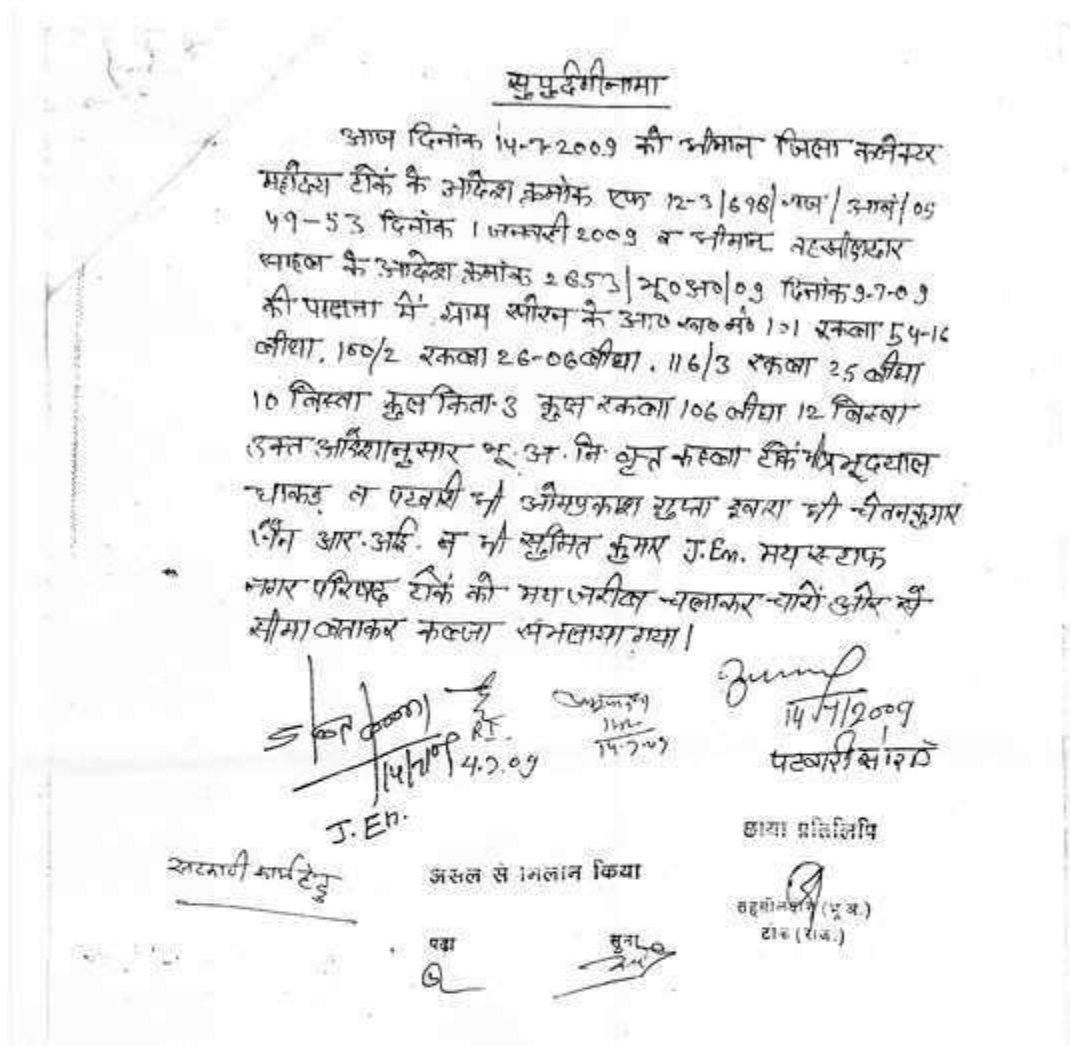 सुपुर्दगीनामा
आज दिनांक 14-7-2009 को श्रीमान जिला कलेक्टर
महोदय टोंक के आदेश क्रमांक एफ 12-3/ /राज/ /05
49-53 दिनांक 1 जनवरी 2009 व श्रीमान तहसीलदार
साहब के आदेश क्रमांक 2653/भू०अ०/09 दिनांक 9-7-09
की पालना में ग्राम सोरन के आ० ख० नं० 101 रकबा 54-16
बीघा, 150/2 रकबा 26-06 बीघा, 116/3 रकबा 25 बीघा
10 बिस्वा कुल किता-3 कुल रकबा 106 बीघा 12 बिस्वा
उक्त आदेशानुसार भू.अ.नि वृत कस्बा टोंक श्री प्रभूदयाल
धाकड़ व पटवारी श्री ओमप्रकाश गुप्ता द्वारा श्री चेतनकुमार
जैन आर.आई. व श्री सुमित कुमार J.En. मय स्टाफ
नगर परिषद टोंक को मय जरीब चलाकर चारों ओर से
सीमा बताकर कब्जा संभलाया गया।
14/7/09
J.En.
R.I.
4.7.09
14-7-09
14/7/2009
पटवारी सोरन
छाया प्रतिलिपि
सरकारी कार्य हेतु
असल से मिलान किया
तहसीलदार (भू.अ.)
टोंक (राज.)
पढा
सुना